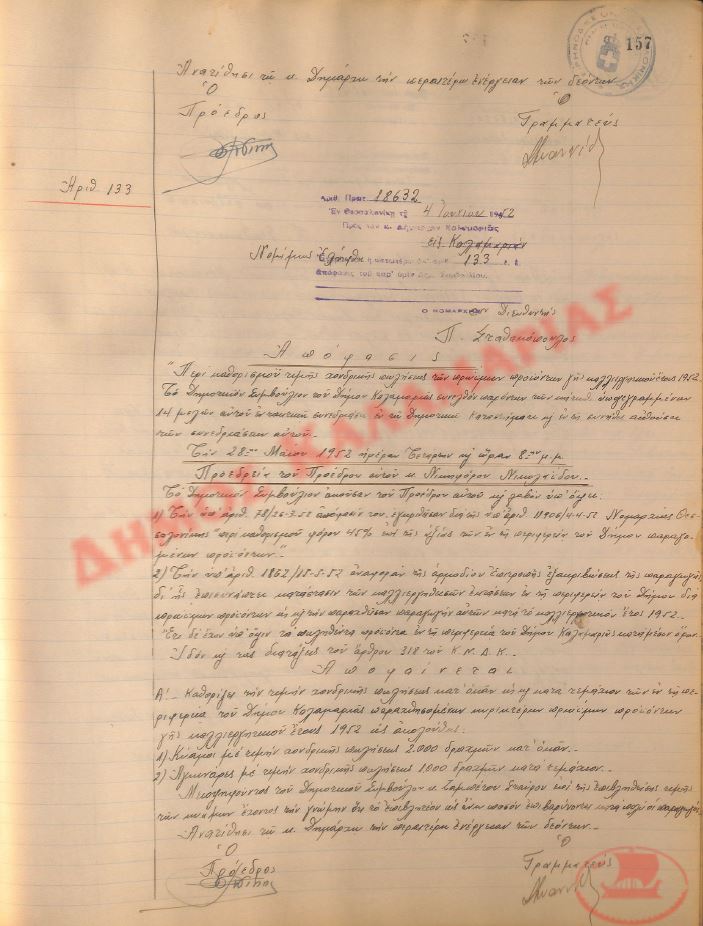 157
Ἀνατίθησι τῷ κ. Δημάρχῳ τὴν περαιτέρω ἐνέργειαν τῶν δεόντων
Ὁ Ὁ
Πρόεδρος Γραμματεύς
Ἀριθ. 133
Ἀριθ. Πρωτ. 18632
Ἐν Θεσσαλονίκῃ τῇ 4 Ἰουνίου 1952
Πρὸς τὸν κ. Δήμαρχον Καλαμαριᾶς
εἰς Καλαμαριάν
Νομίμως ἐλήφθη 133
ἀπόφασις τοῦ παρ' ὑμῖν Δημ. Συμβουλίου.
Ο ΝΟΜΑΡΧΗΣ Διευθυντής
Π. Σταθακόπουλος
Ἀπόφασις
"Περὶ καθορισμοῦ τιμῆς χονδρικῆς πωλήσεως τῶν πρωίμων προϊόντων γῆς καλλιεργητικοῦ ἔτους 1952.
Τὸ Δημοτικὸν Συμβούλιον τοῦ Δήμου Καλαμαριᾶς συνελθὸν παρόντων τῶν κάτωθι ὑπογεγραμμένων
14 μελῶν αὐτοῦ ἐν τακτικῇ συνεδριάσει ἐν τῷ Δημοτικῷ Καταστήματι κ ἐν τῇ συνήθει αἰθούσῃ
τῶν συνεδριάσεων αὐτοῦ.
Τὴν 28ην Μαΐου 1952 ἡμέραν Τετάρτην κ ὥραν 8ην μ.μ.
Προεδρείᾳ τοῦ Προέδρου αὐτοῦ κ. Νικηφόρου Νικολαΐδου.
Τὸ Δημοτικὸν Συμβούλιον ἀκοῦσαν τοῦ Προέδρου αὐτοῦ κ λαβὸν ὑπ' ὄψιν.
1) Τὴν ὑπ' ἀριθ. 78/26-3-52 ἀπόφασίν του, ἐγκριθεῖσαν διὰ τῆς ὑπ' ἀριθ. 11906/4-4-52 Νομαρχίας Θεσ-
σαλονίκης "περὶ καθορισμοῦ φόρου 45% ἐπὶ τῆς ἀξίας τῶν ἐν τῇ περιφερείᾳ τοῦ Δήμου παραγο-
μένων προϊόντων".
2) Τὴν ὑπ' ἀριθ. 1862/15-5-52 ἀναφορὰν τῆς ἁρμοδίου ἐπιτροπῆς ἐξακριβώσεως τῆς παραγωγῆς
δι' ἧς ἐπισυνάπτει κατάστασιν τῶν καλλιεργηθεισῶν ἐκτάσεων ἐν τῇ περιφερείᾳ τοῦ Δήμου διὰ
πρωίμων προϊόντων ὡς κ τὴν παραχθεῖσαν παραγωγὴν αὐτῶν κατὰ τὸ καλλιεργητικὸν ἔτος 1952.
Ἔτι δὲ ἔχον ὑπ' ὄψιν τὰ πωληθέντα προϊόντα ἐν τῇ περιφερείᾳ τοῦ Δήμου Καλαμαριᾶς κατὰ μέσον ὅρον.
Ἰδὸν κ τὰς διατάξεις τοῦ ἄρθρου 318 τοῦ Κ.Ν.Δ.Κ.
Ἀποφαίνεται
Α'.- Καθορίζει τὴν τιμὴν χονδρικῆς πωλήσεως κατ' ὀκᾶν ὡς κ κατὰ τεμάχιον τῶν ἐν τῇ πε-
ριφερείᾳ τοῦ Δήμου Καλαμαριᾶς παραχθησομένων κυριωτέρων πρωίμων προϊόντων
γῆς καλλιεργητικοῦ ἔτους 1952 ὡς ἀκολούθως:
1) Κύαμοι μὲ τιμὴν χονδρικῆς πωλήσεως 2.000 δραχμῶν κατ' ὀκᾶν.
2) Ἀγκινάρες μὲ τιμὴν χονδρικῆς πωλήσεως 1000 δραχμῶν κατὰ τεμάχιον.
Μειοψηφοῦντος τοῦ Δημοτικοῦ Συμβούλου κ. Σταύρου ἐπὶ τῆς ἐπιβληθείσης τιμῆς
τῶν κυάμων ἔχοντος τὴν γνώμην ὅτι τὸ ἐπιβλητέον ὡς ἄνω ποσὸν ἐπιβαρύνει κατὰ πολὺ οἱ παραγωγοί.
Ἀνατίθησι τῷ κ. Δημάρχῳ τὴν περαιτέρω ἐνέργειαν τῶν δεόντων.
Ὁ Ὁ
Πρόεδρος Γραμματεύς
ΔΗΜΟΣ ΚΑΛΑΜΑΡΙΑΣ